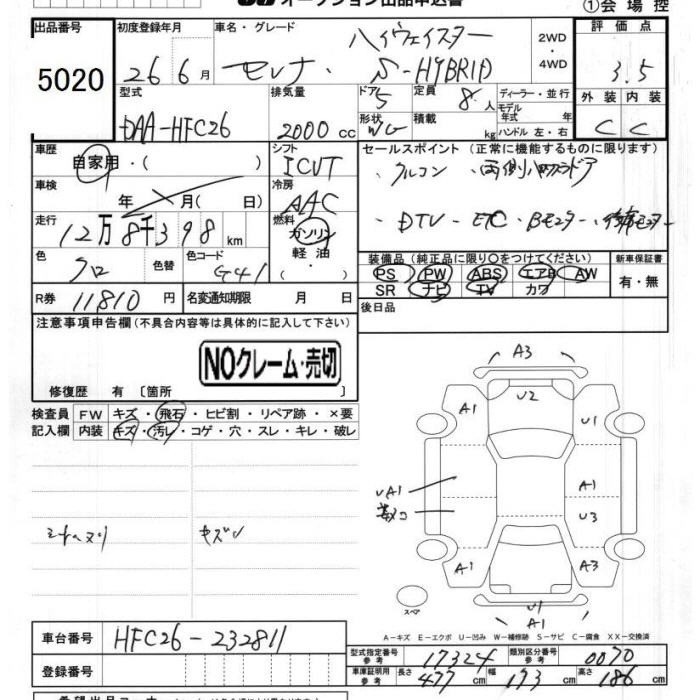 オークション出品申込書
①会場控
出品番号 初度登録年月 車名・グレード 評価点
5020 26 6月 セレナ・ハイウェイスター S-HYBRID 2WD・4WD 3.5
型式 排気量 ドア 定員 ディーラー・並行 外装 内装
DAA-HFC26 2000cc 5 8人 モデル年式 年 C C
形状 WG 積載 kg ハンドル 左・右
車歴 シフト セールスポイント (正常に機能するものに限ります)
自家用・( ) ICVT
車検 年 月( 日) 冷房 AAC
・DTV ・ETC ・Bモニター
走行 12万8千398km 燃料 ガソリン・軽油・( )
色 クロ 色替 色コード G41
装備品 (純正品に限り〇をつけてください) 新車保証書
PS PW ABS エアB AW 有・無
SR ナビ TV カワ
R券 11810円 名変通知期限 月 日
後日品
注意事項申告欄 (不具合内容等は具体的に記入して下さい)
NOクレーム・売切
修復歴 有〔箇所 〕
検査員 FW キズ・飛石・ヒビ割・リペア跡・×要
記入欄 内装 キズ・汚レ・コゲ・穴・スレ・キレ・破レ
A3
A1 U2 U1
UA1 A1
U3
A1 A3
U1
A1
スペア
A-キズ E-エクボ U-凹み W-補修跡 S-サビ C-腐食 XX-交換済
車台番号 HFC26-232811
登録番号
型式指定番号 参考 17324 類別区分番号 参考 0070
車庫証明用 参考 長さ 477cm 幅 173cm 高さ 186cm